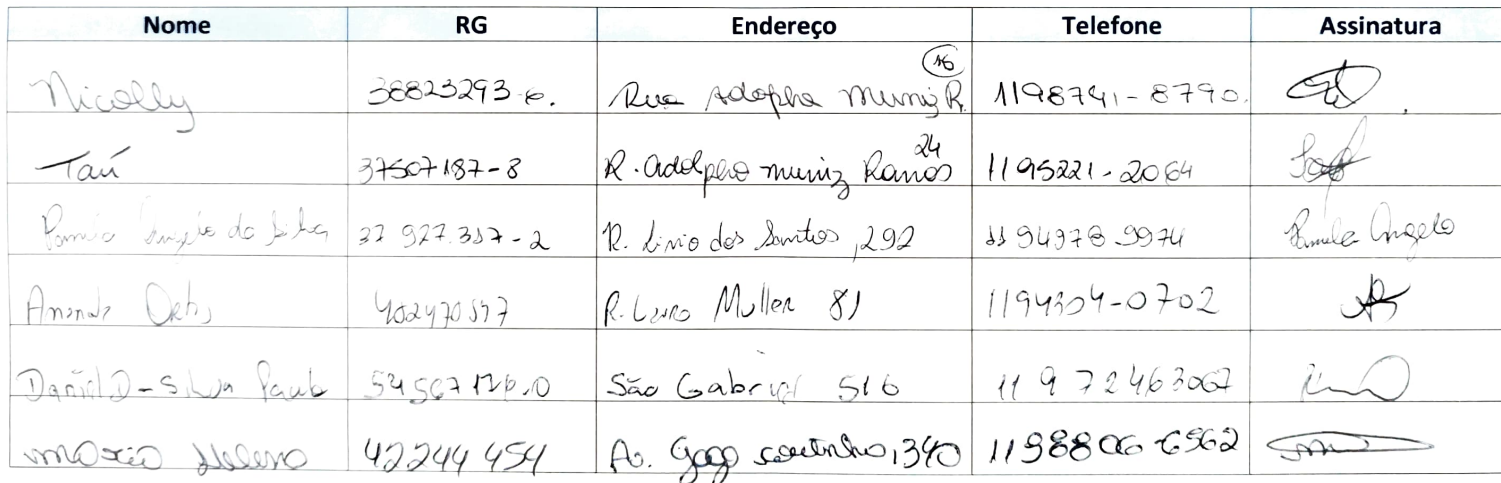 Nome RG Endereço Telefone Assinatura
Nicolly 38823293-6. Rua Adolpho Muniz R. 16 1198741-8790.
Taú 37507187-8 R. Adolpho muniz Ramos 24 1195221-2064
da Silva 37 927.357-2 R. Livio dos Santos, 292 11 94978 9974 Pamela Angelo
R. Lauro Muller 81 1194304-0702
Daniel D-Silva Paulo São Gabriel 516 11 9 72463067
42244 454 Av. Gago coutinho, 340 1198806-6562